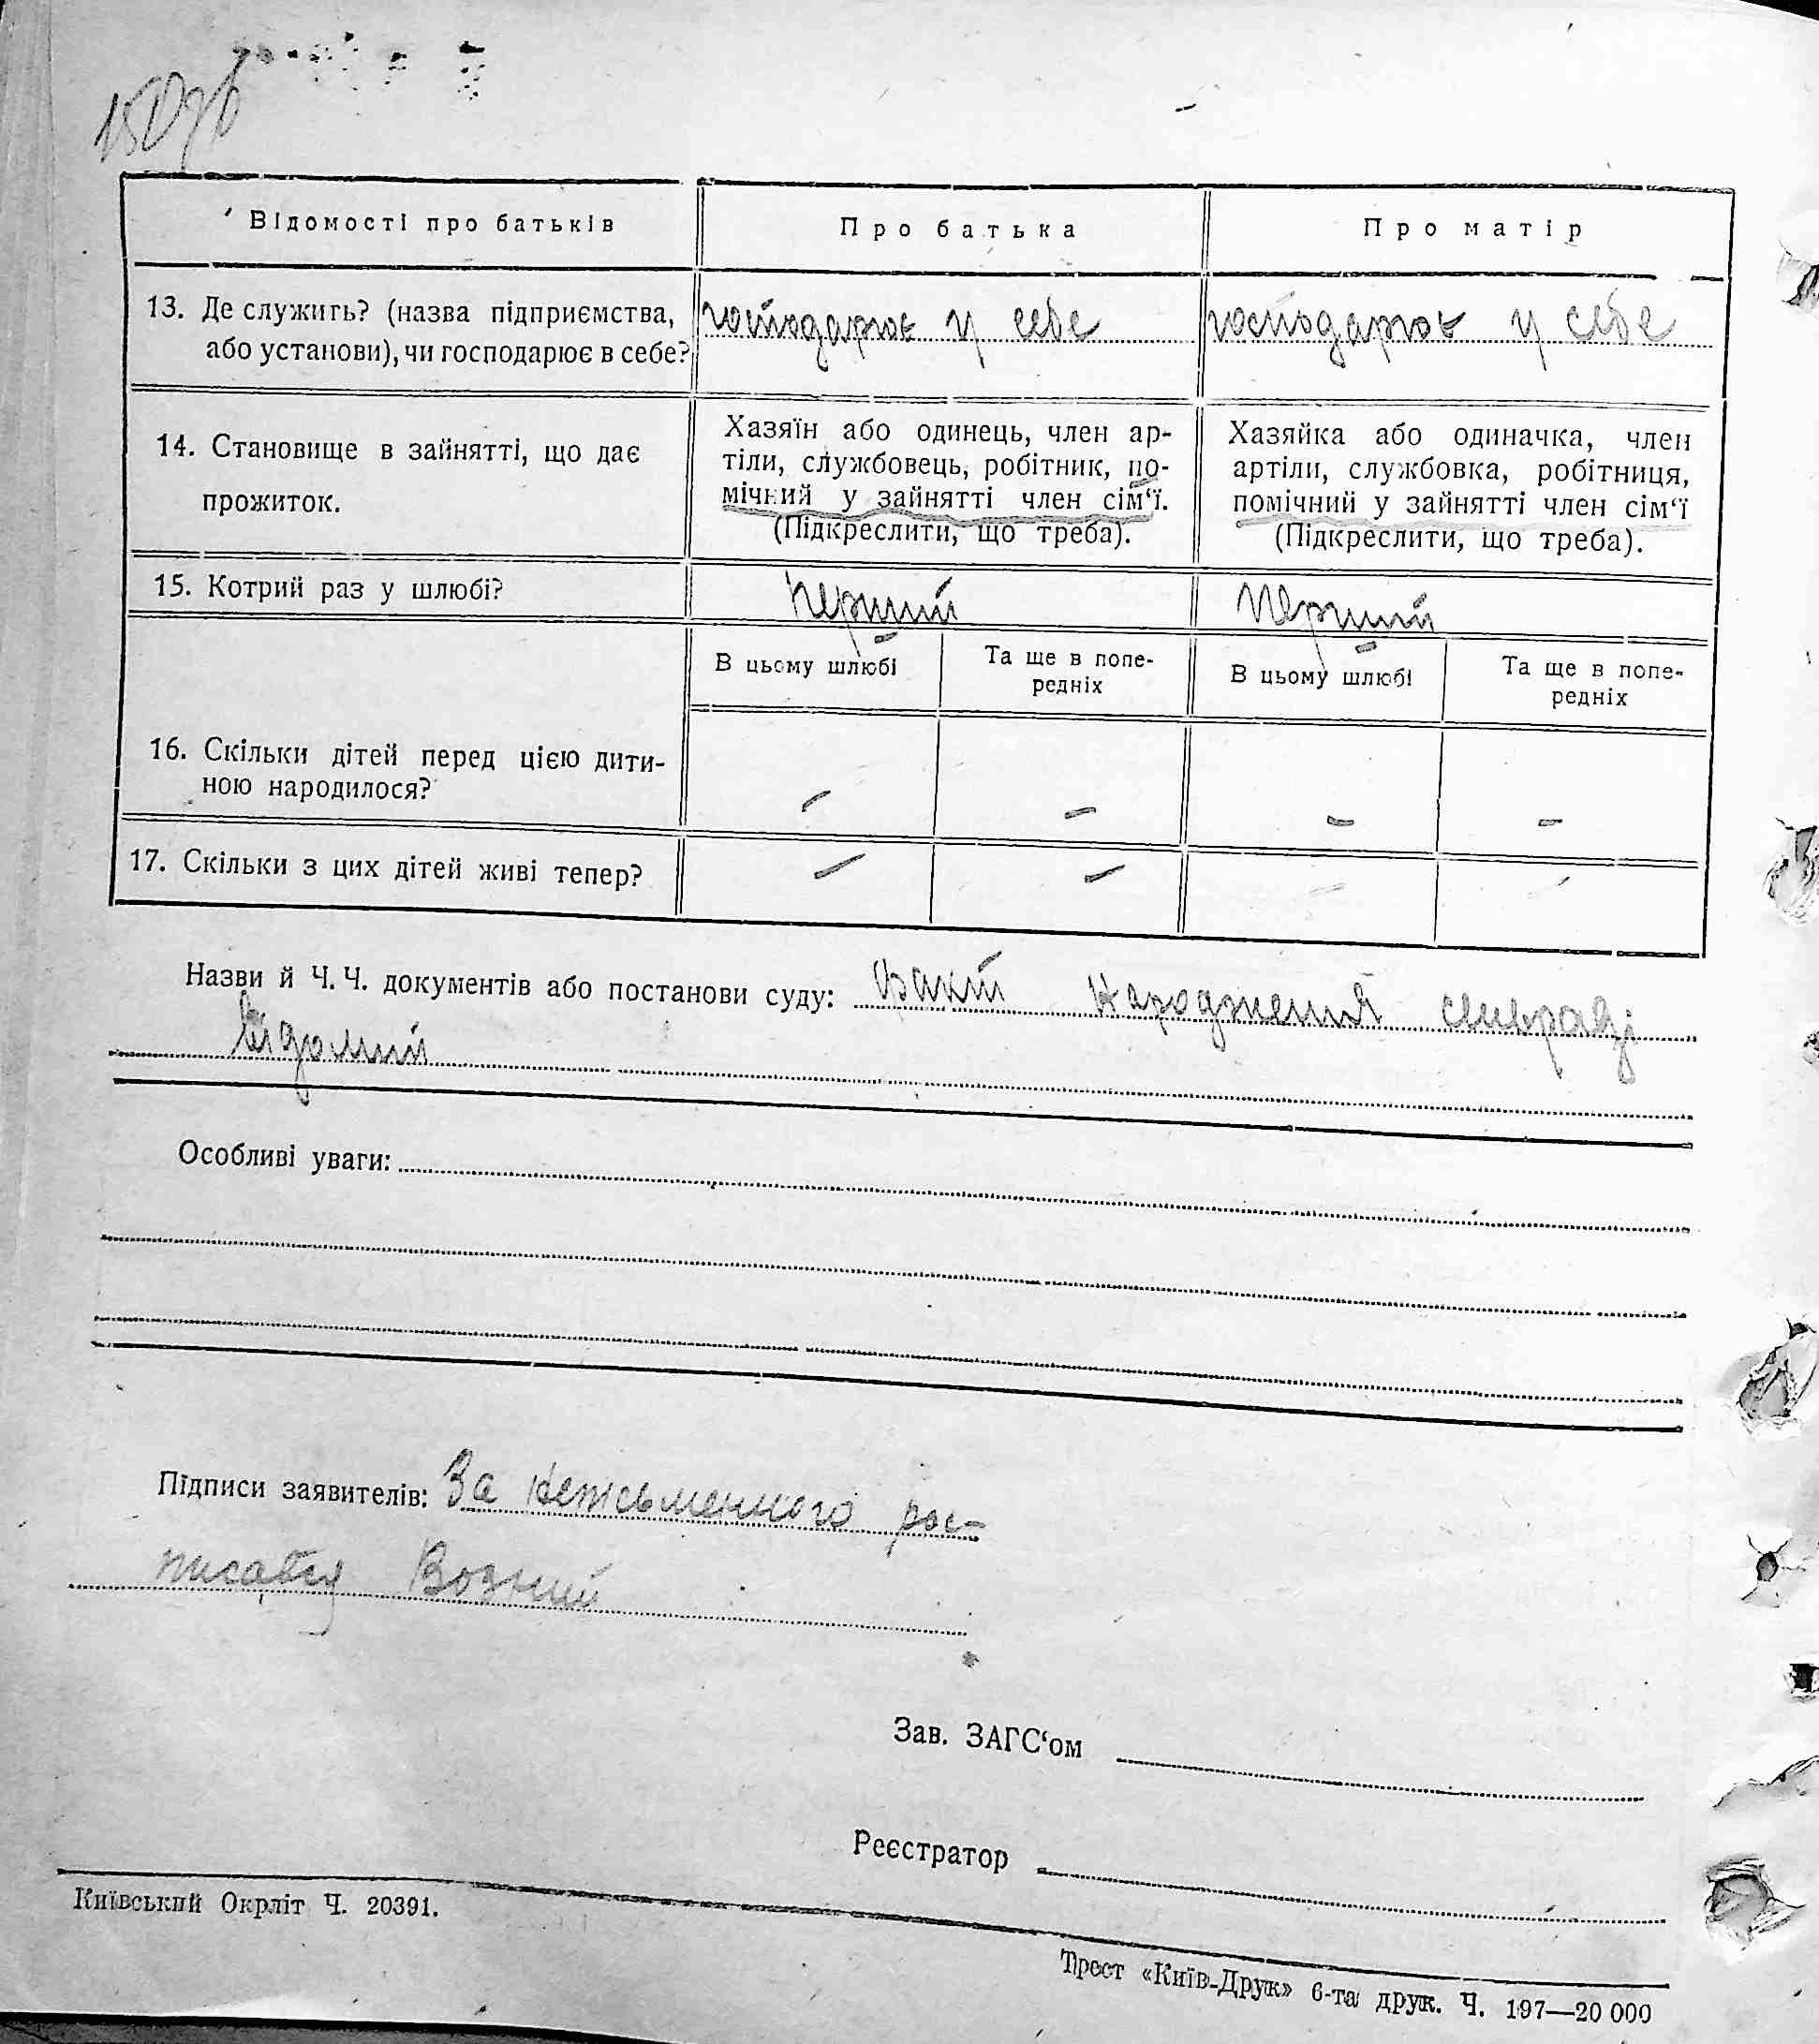 Відомості про батьків
Про батька
Про матір
13. Де служить? (назва підприємства,
або установи), чи господарює в себе?
господарює у себе
господарює у себе
14. Становище в зайнятті, що дає
прожиток.
Хазяїн або одинець, член ар-
тіли, службовець, робітник, по-
мічний у зайнятті член сім‘ї.
(Підкреслити, що треба).
Хазяйка або одиначка, член
артіли, службовка, робітниця,
помічний у зайнятті член сім‘ї
(Підкреслити, що треба).
15. Котрий раз у шлюбі?
перший
перший
В цьому шлюбі
Та ще в попе-
редніх
В цьому шлюбі
Та ще в попе-
редніх
16. Скільки дітей перед цією дити-
ною народилося?
-
-
-
-
17. Скільки з цих дітей живі тепер?
-
-
-
-
Назви й Ч. Ч. документів або постанови суду: факт народження сельраді
відомий
Особливі уваги:
Підписи заявителів: За неписьменного рос-
писався Возний
Зав. ЗАГС‘ом
Реєстратор
Київський Окрліт Ч. 20391.
Трест «Київ-Друк» 6-та друк. Ч. 197—20 000